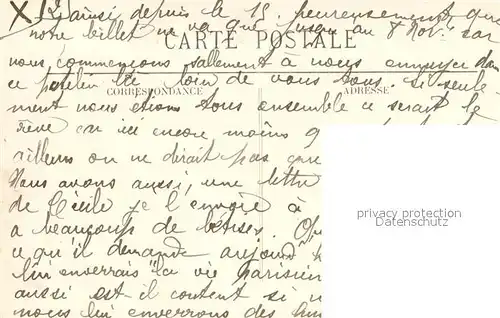 X) ainsi depuis le 15, heureusement que
notre billet ne va que jusqu'au 8 Nov. car
CARTE POSTALE
nous commençons salement à nous ennuyer dans
ce patelin là loin de vous tous. Si seule-
CORRESPONDANCE ADRESSE
ment nous étions tous ensemble ce serait le
rêve car ici encore moins
ailleurs on ne dirait pas que
Nous avons aussi une lettre
de Cécile je l'envoie à
a beaucoup de bêtises.
ce qu'il demande aujourd'h
lui enverrais "la vie parisien
aussi est-il content si
nous lui enverrons des
privacy protection
Datenschutz